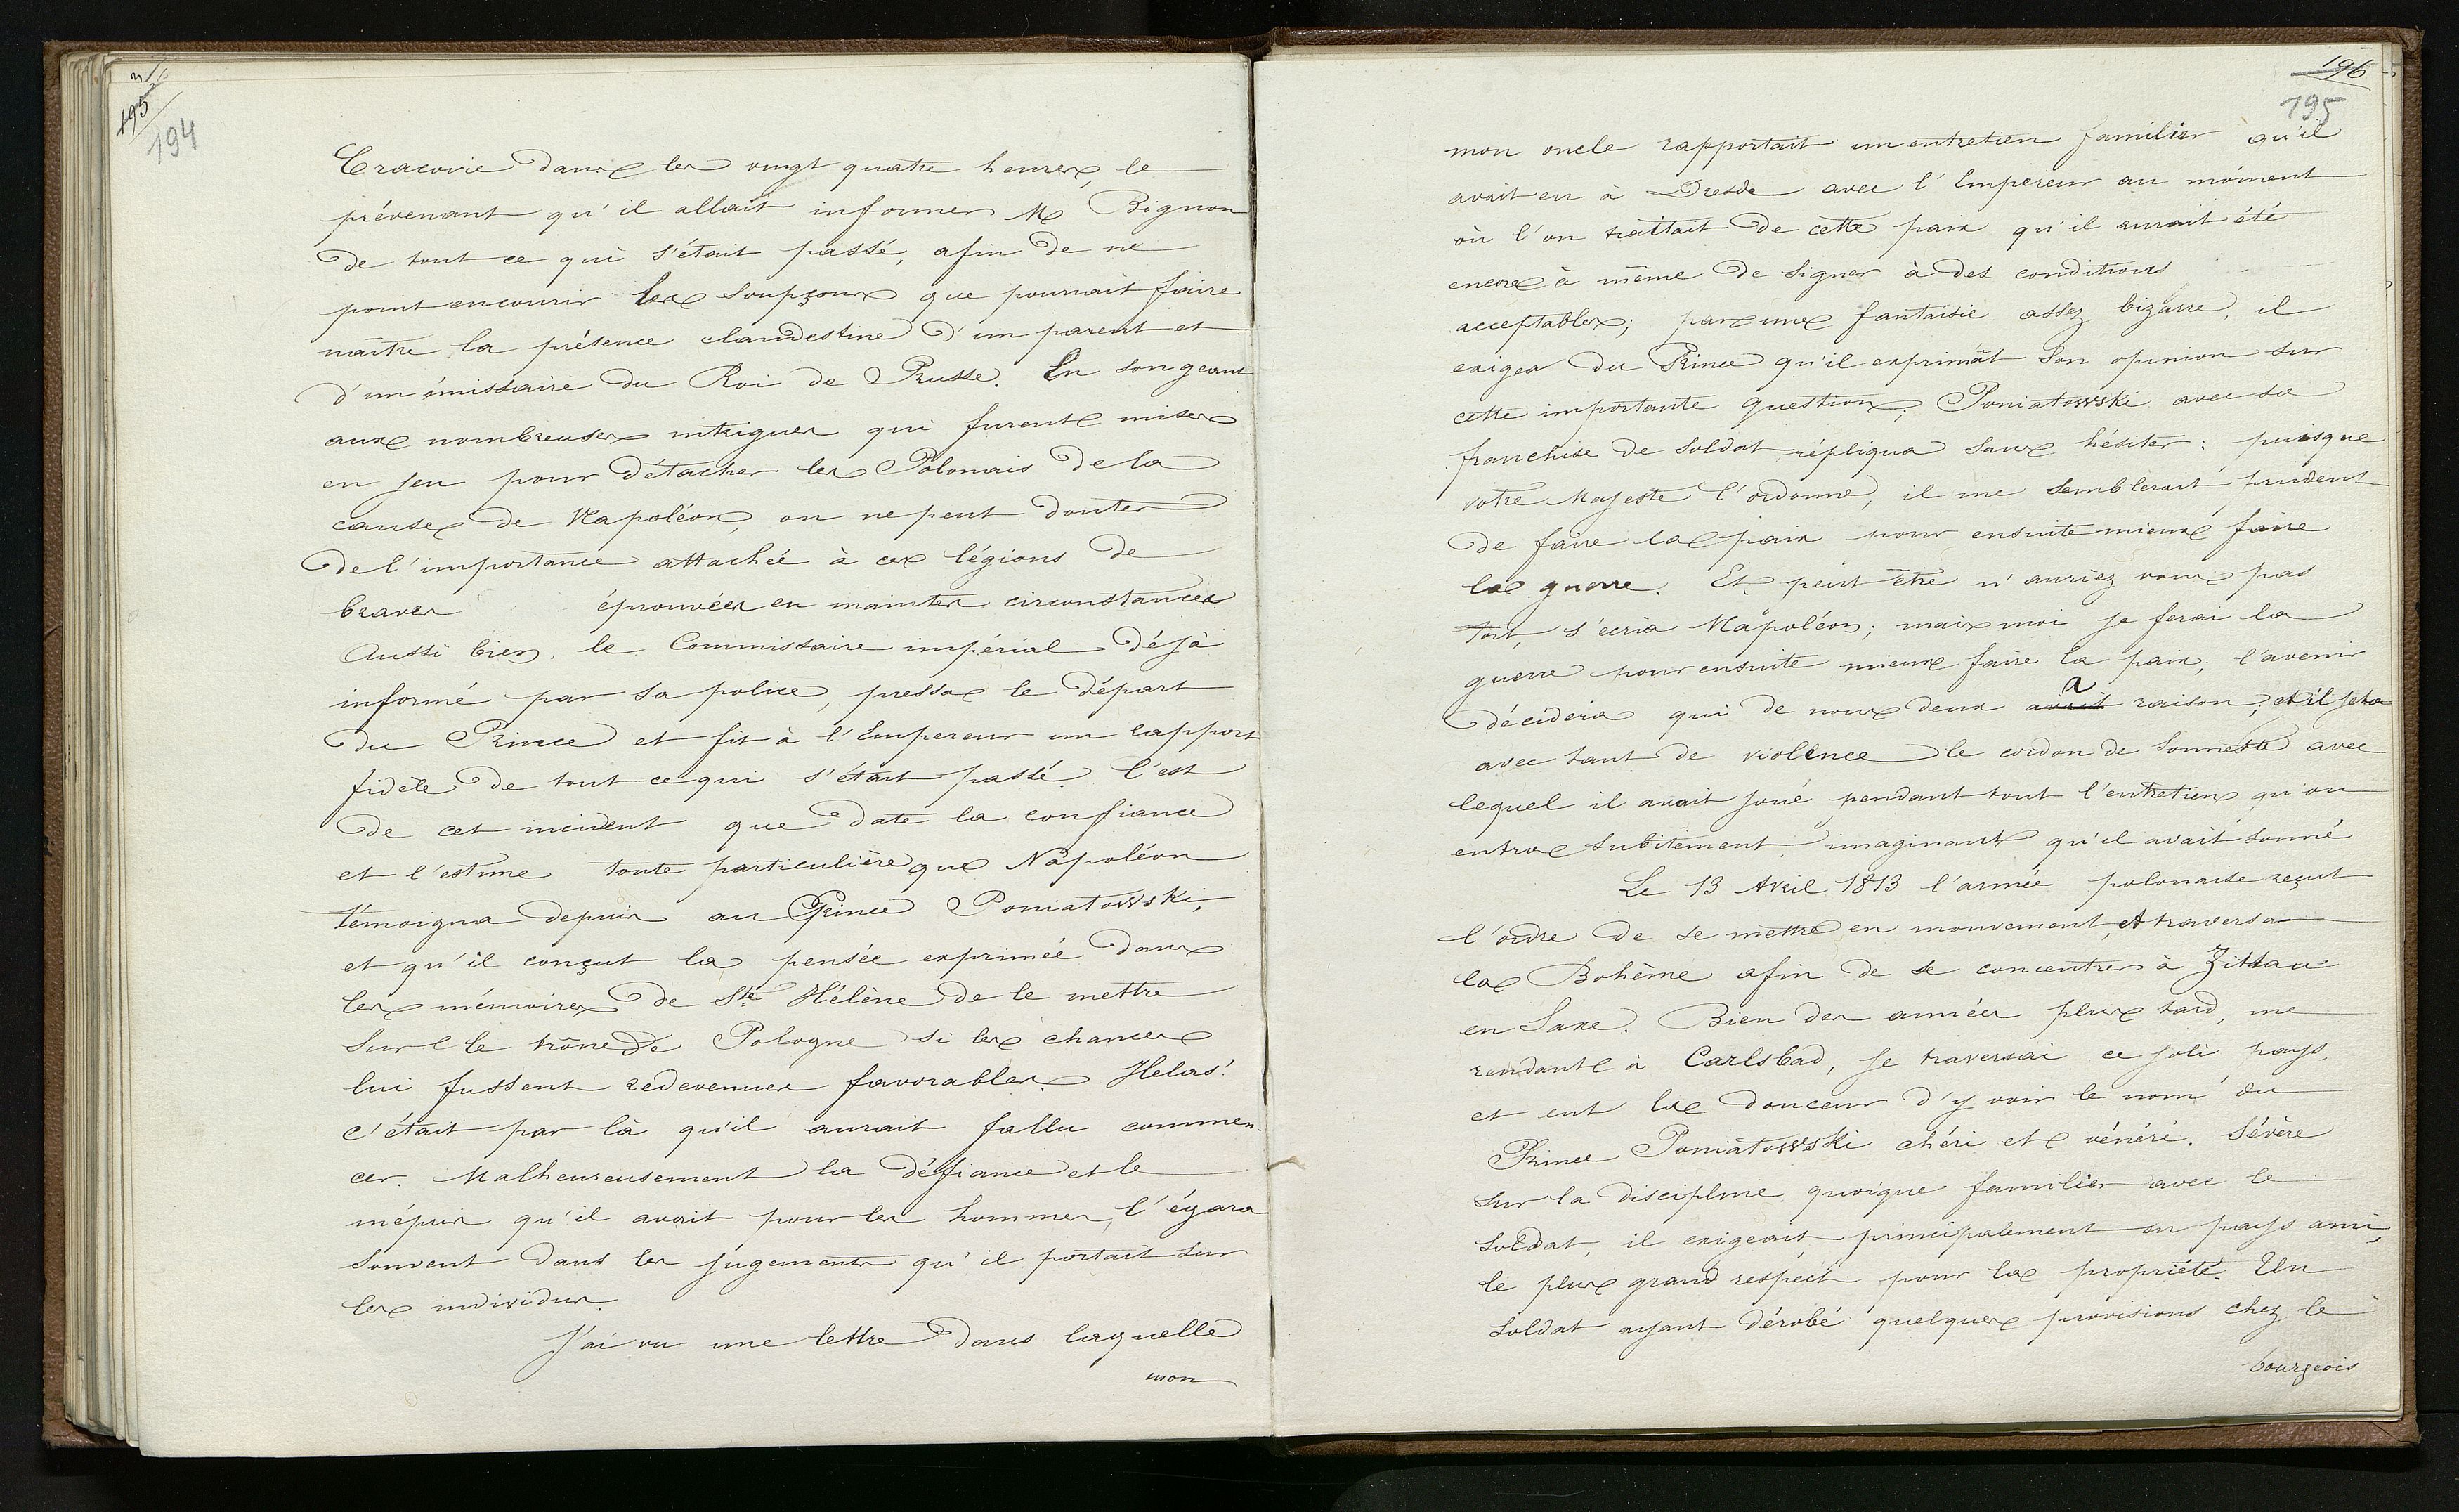 195
194
Cracovie dans les vingt quatre heures, le
prévenant qu'il allait informer M Bignon
de tout ce qui s'était passé, afin de ne
point encourir les soupçons que pourrait faire
naître la présence clandestine d'un parent et
d'un émissaire du Roi de Prusse. En songeant
aux nombreuses intrigues qui furent mises
en jeu pour détacher les Polonais de la
cause de Napoléon, on ne peut douter
de l'importance attachée à ces légions de
braves éprouvées en maintes circonstances
Aussi bien, le Commissaire impérial déjà
informé par sa police, pressa le départ
du Prince et fit à l'Empereur un rapport
fidèle de tout ce qui s'était passé. C'est
de cet incident que date la confiance
et l'estime toute particulière que Napoléon
témoigna depuis au Prince Poniatowski,
et qu'il conçut la pensée exprimée dans
les mémoires de Ste Hélène de le mettre
sur le trône de Pologne si les chances
lui fussent redevenues favorables. Helas!
c'était par là qu'il aurait fallu commen-
cer. Malheureusement la défiance et le
mépris qu'il avait pour les hommes, l'égara
souvent dans les jugements qu'il portait sur
les individus.
J'ai vu une lettre dans laquelle
mon
196
195
mon oncle rapportait un entretien familier qu'il
avait eu à Dresde avec l'Empereur au moment
où l'on traitait de cette paix qu'il aurait été
encore à même de signer à des conditions
acceptables; par une fantaisie assez bizarre, il
exigea du Prince qu'il exprimât son opinion sur
cette importante question; Poniatowski avec sa
franchise de soldat répliqua sans hésiter: puisque
votre Majesté l'ordonne, il me semblerait prudent
de faire la paix pour ensuite mieux faire
la guerre. Et peut être n'auriez vous pas
tort, s'écria Napoléon; mais moi je ferai la
guerre pour ensuite mieux faire la paix; l'avenir
décidera qui de nous deux avait a raison, et il jeta
avec tant de violence le cordon de sonnette avec
lequel il avait joué pendant tout l'entretien qu'on
entra subitement imaginant qu'il avait sonné
Le 13 Avril 1813 l'armée polonaise reçut
l'ordre de se mettre en mouvement, et traversa
la Bohême afin de se concentrer à Zittau
en Saxe. Bien des années plus tard, me
rendant à Carlsbad, je traversai ce joli pays,
et eut la douceur d'y voir le nom du
Prince Poniatowski chéri et vénéré. Sévère
sur la discipline quoique familier avec le
soldat, il exigeait, principalement en pays ami,
le plus grand respect pour la propriété. Un
soldat ayant dérobé quelques provisions chez le
bourgeois